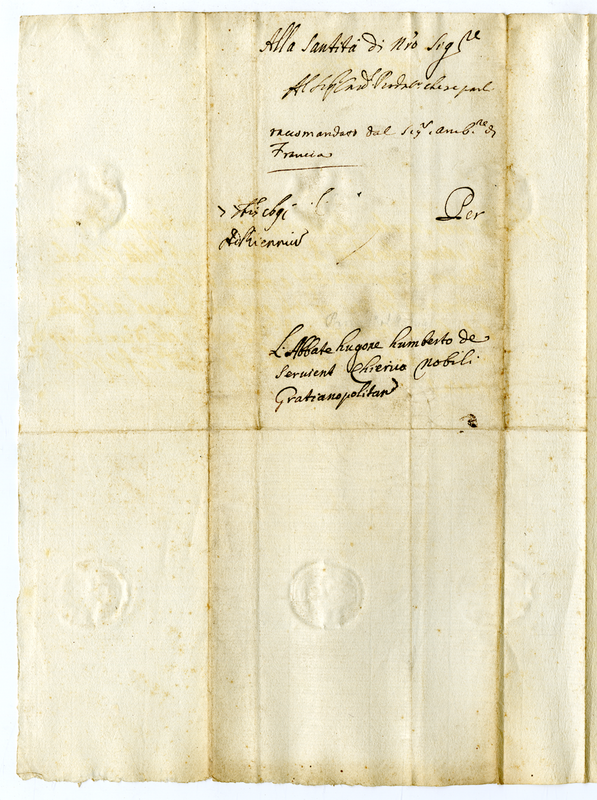 Alla Santità di Nrõ Sig.re
Al Sig.r Card. che ne parli
raccomandato dal Sig.r Amb.re di
Francia
Per
Viennius
L'Abbate hugone humberto de
Seruient Chierico nobili
Gratianopolitan